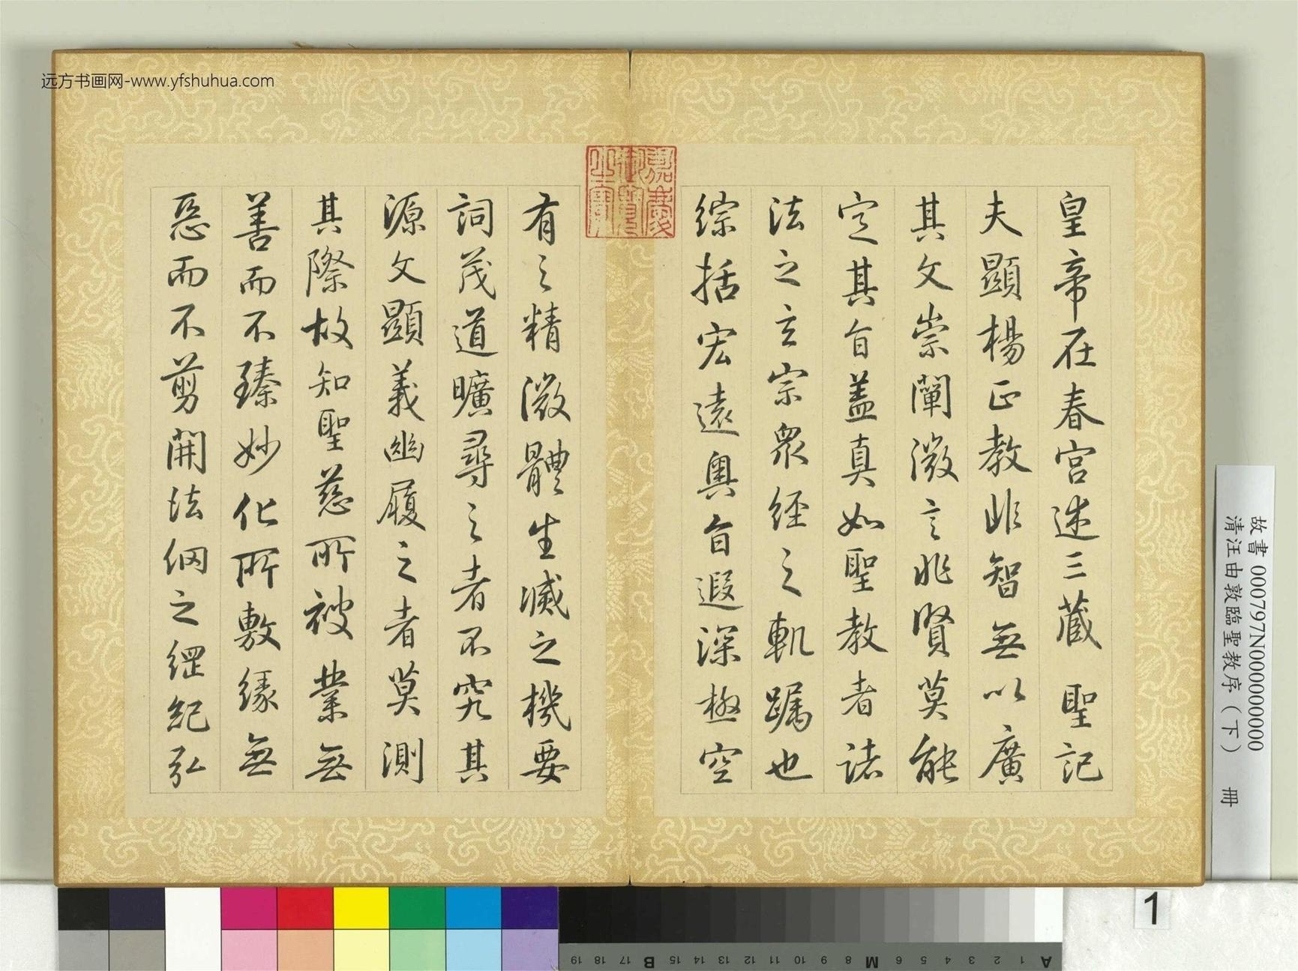 远方书画网-www.yfshuhua.com
皇帝在春宮述三藏聖記
夫顯楊正教非智無以廣
其文崇闡微言非賢莫能
定其旨盖真如聖教者諸
法之玄宗衆經之軌躅也
綜括宏遠奧旨遐深極空
有之精微體生滅之機要
詞茂道曠尋之者不究其
源文顯義幽履之者莫測
其際故知聖慈所被業無
善而不臻妙化所敷緣無
惡而不剪開法網之綱紀弘
嘉慶御覽之寶
故書 000797N000000000
清汪由敦臨聖教序(下) 冊
1
A 1 2 3 4 5 6 M 8 9 10 11 12 13 14 15 B 17 18 19